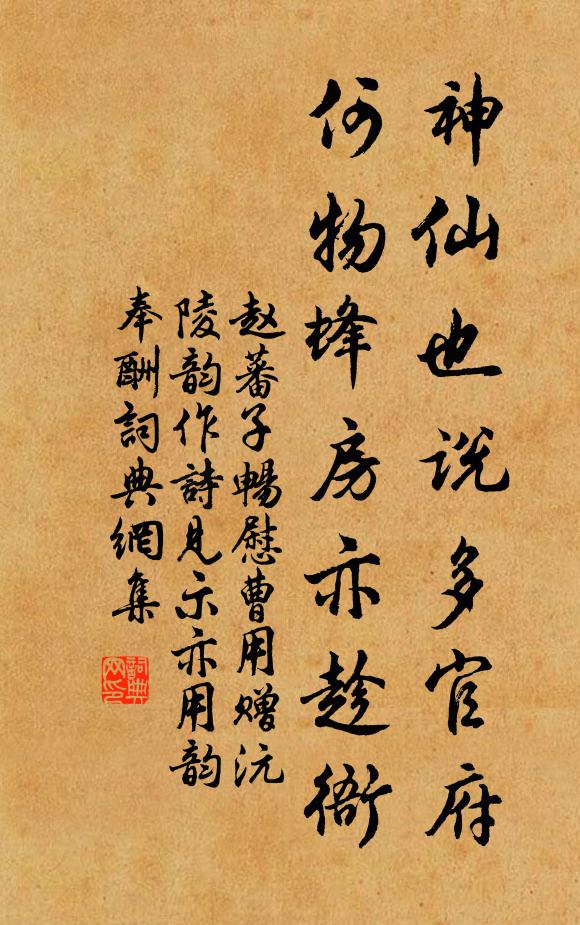 神仙也说多官府
何物蜂房亦趁衙
赵蕃子暢慰曹用赠沅
陵韵作詩見示亦用韵
奉酬詞典網集
詞典网印